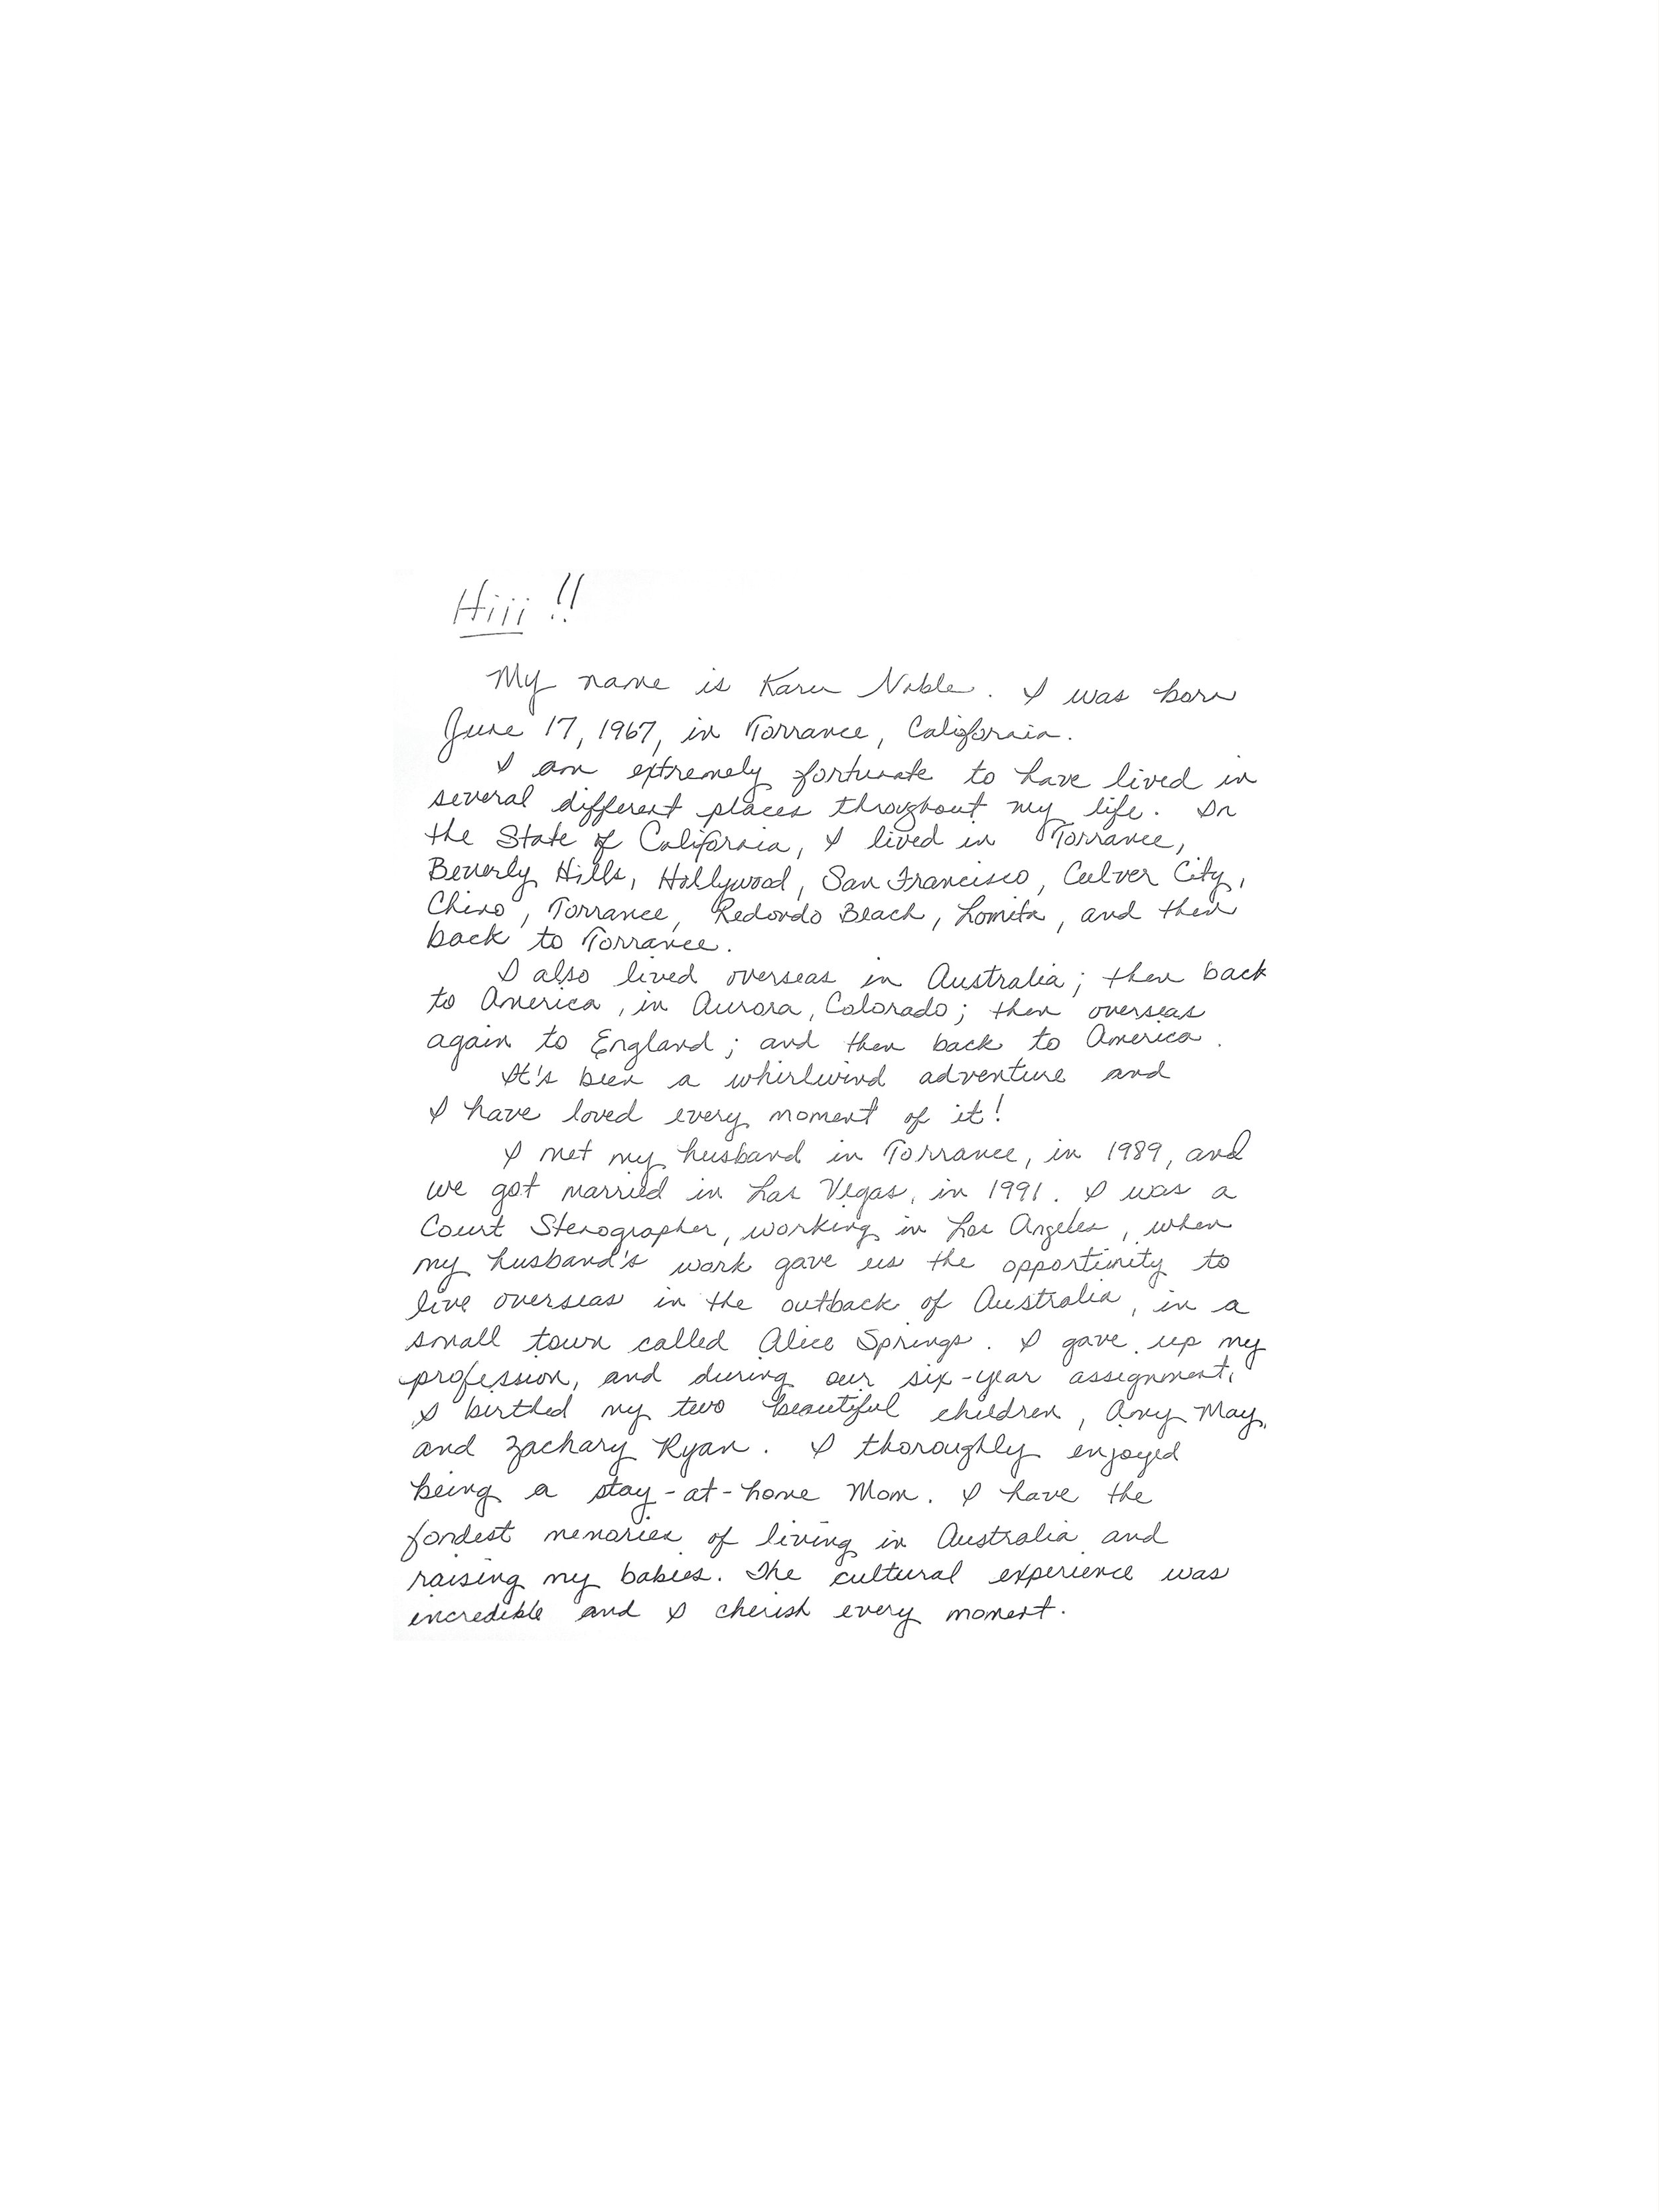 Hiii !!
My name is Karen Noble. I was born
June 17, 1967, in Torrance, California.
I am extremely fortunate to have lived in
several different places throughout my life. In
the State of California, I lived in Torrance,
Beverly Hills, Hollywood, San Francisco, Culver City,
Chino, Torrance, Redondo Beach, Lomita, and then
back to Torrance.
I also lived overseas in Australia; then back
to America, in Aurora, Colorado; then overseas
again to England; and then back to America.
It's been a whirlwind adventure and
I have loved every moment of it!
I met my husband in Torrance, in 1989, and
we got married in Las Vegas, in 1991. I was a
Court Stenographer, working in Los Angeles, when
my husband's work gave us the opportunity to
live overseas in the outback of Australia, in a
small town called Alice Springs. I gave up my
profession, and during our six-year assignment,
I birthed my two beautiful children, Amy May,
and Zachary Ryan. I thoroughly enjoyed
being a stay-at-home Mom. I have the
fondest memories of living in Australia and
raising my babies. The cultural experience was
incredible and I cherish every moment.